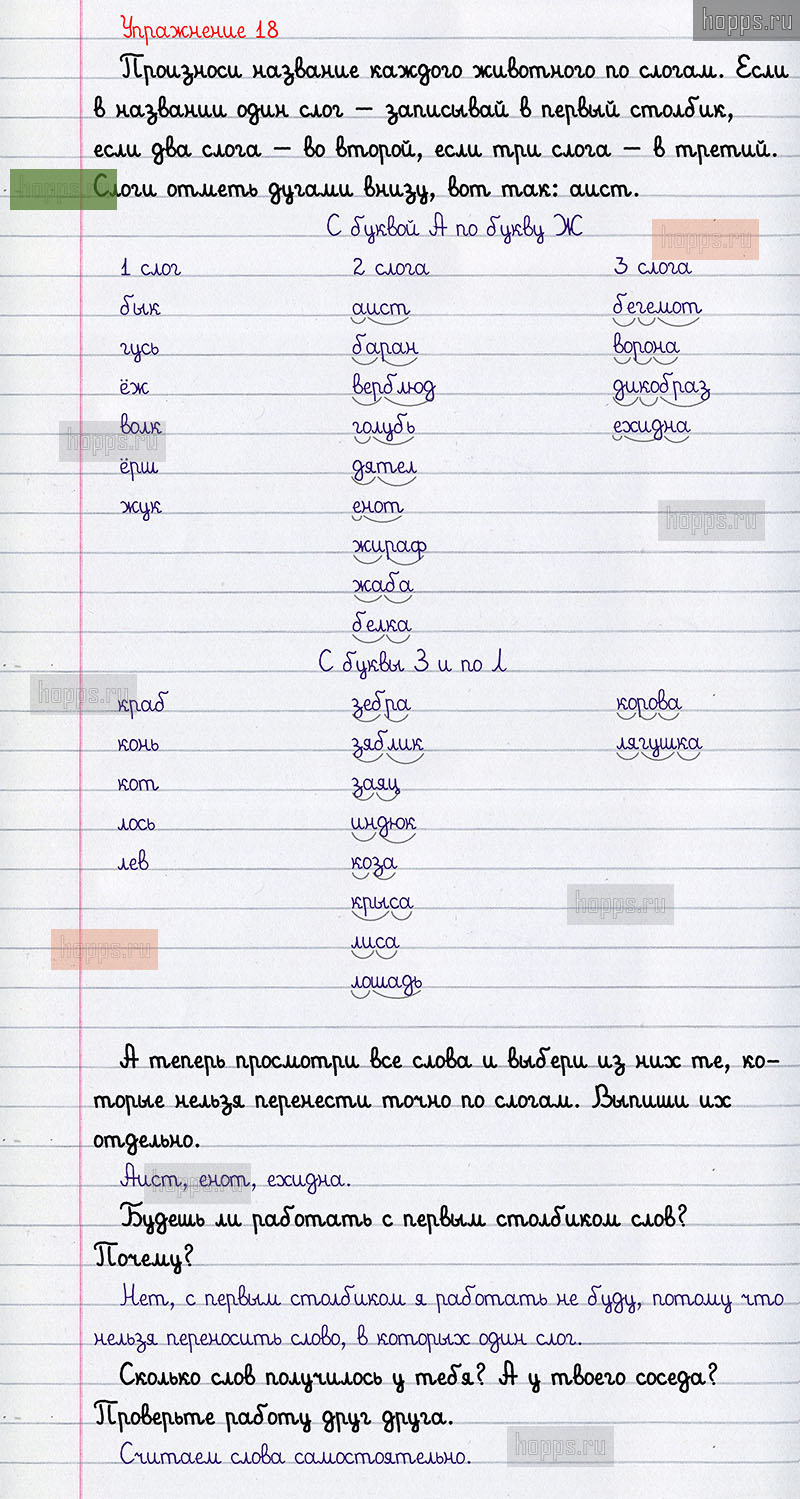 hopps.ru
Упражнение 18
Произноси название каждого животного по слогам. Если
в названии один слог — записывай в первый столбик,
если два слога — во второй, если три слога — в третий.
hopps.ru
Слоги отметь дугами внизу, вот так: аист.
С буквой А по букву Ж
hopps.ru
1 слог 2 слога 3 слога
бык аист бегемот
гусь баран ворона
ёж верблюд дикобраз
волк голубь ехидна
hopps.ru
ёрш дятел
жук енот
hopps.ru
жираф
жаба
белка
С буквы З и по Л
hopps.ru
краб зебра корова
конь зяблик лягушка
кот заяц
лось индюк
лев коза
крыса
hopps.ru
лиса
hopps.ru
лошадь
А теперь просмотри все слова и выбери из них те, ко-
торые нельзя перенести точно по слогам. Выпиши их
отдельно.
Аист, енот, ехидна.
hopps.ru
Будешь ли работать с первым столбиком слов?
Почему?
Нет, с первым столбиком я работать не буду, потому что
нельзя переносить слово, в которых один слог.
Сколько слов получилось у тебя? А у твоего соседа?
Проверьте работу друг друга.
hopps.ru
Считаем слова самостоятельно.